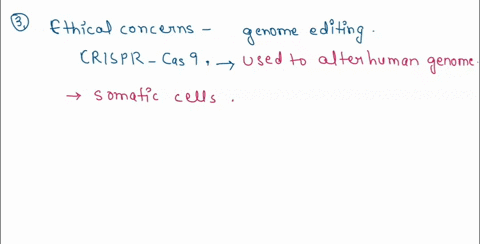 3. Ethical concerns - genome editing.
CRISPR - Cas 9, → used to alter human genome.
→ somatic cells.